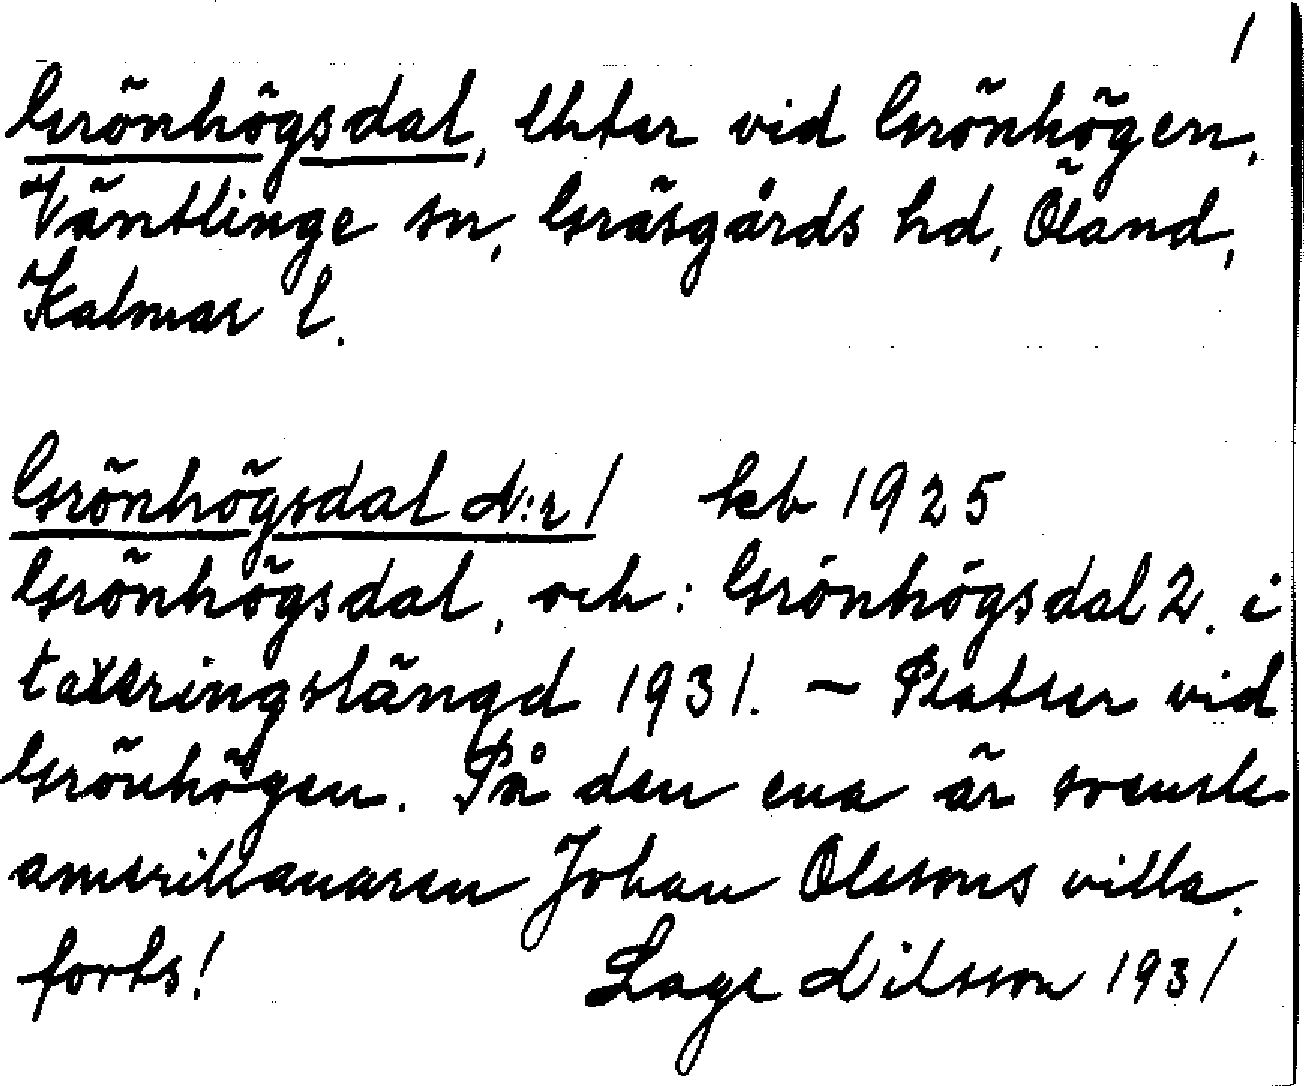 1
Grönhögsdal, lhter vid Grönhögen,
Väntlinge sn, Gräsgårds hd, Öland,
Kalmar l.
Grönhögsdal N:r 1 kb 1925
Grönhögsdal, och: Grönhögsdal 2. i
taxeringslängd 1931. – Platser vid
Grönhögen. På den ena är svensk-
amerikanaren Johan Olssons villa.
forts! Lage Nilsson 1931